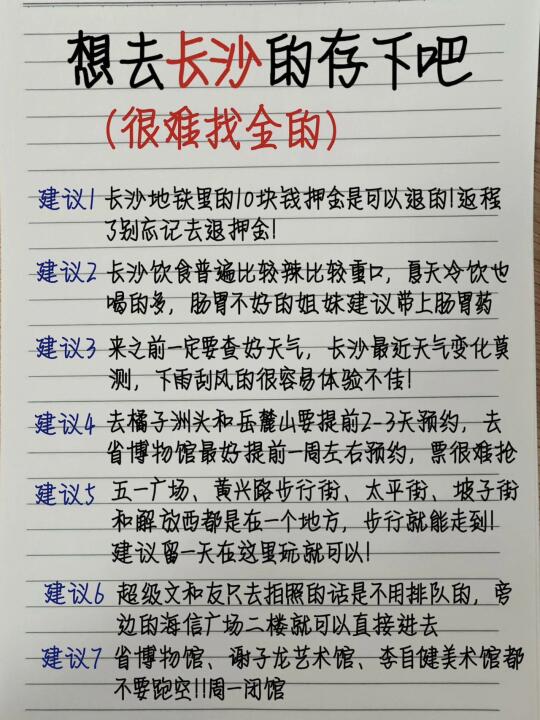 想去长沙的存下吧
(很难找全的)
建议1 长沙地铁里的10块钱押金是可以退的!返程
了别忘记去退押金!
建议2 长沙饮食普遍比较辣比较重口，夏天冷饮也
喝的多，肠胃不好的姐妹建议带上肠胃药
建议3 来之前一定要查好天气，长沙最近天气变化莫
测，下雨刮风的很容易体验不佳!
建议4 去橘子洲头和岳麓山要提前2-3天预约，去
省博物馆最好提前一周左右预约，票很难抢
建议5 五一广场、黄兴路步行街、太平街、坡子街
和解放西都是在一个地方，步行就能走到!
建议留一天在这里玩就可以!
建议6 超级文和友只去拍照的话是不用排队的，旁
边的海信广场二楼就可以直接进去
建议7 省博物馆、谢子龙艺术馆、李自健美术馆都
不要跑空!!周一闭馆